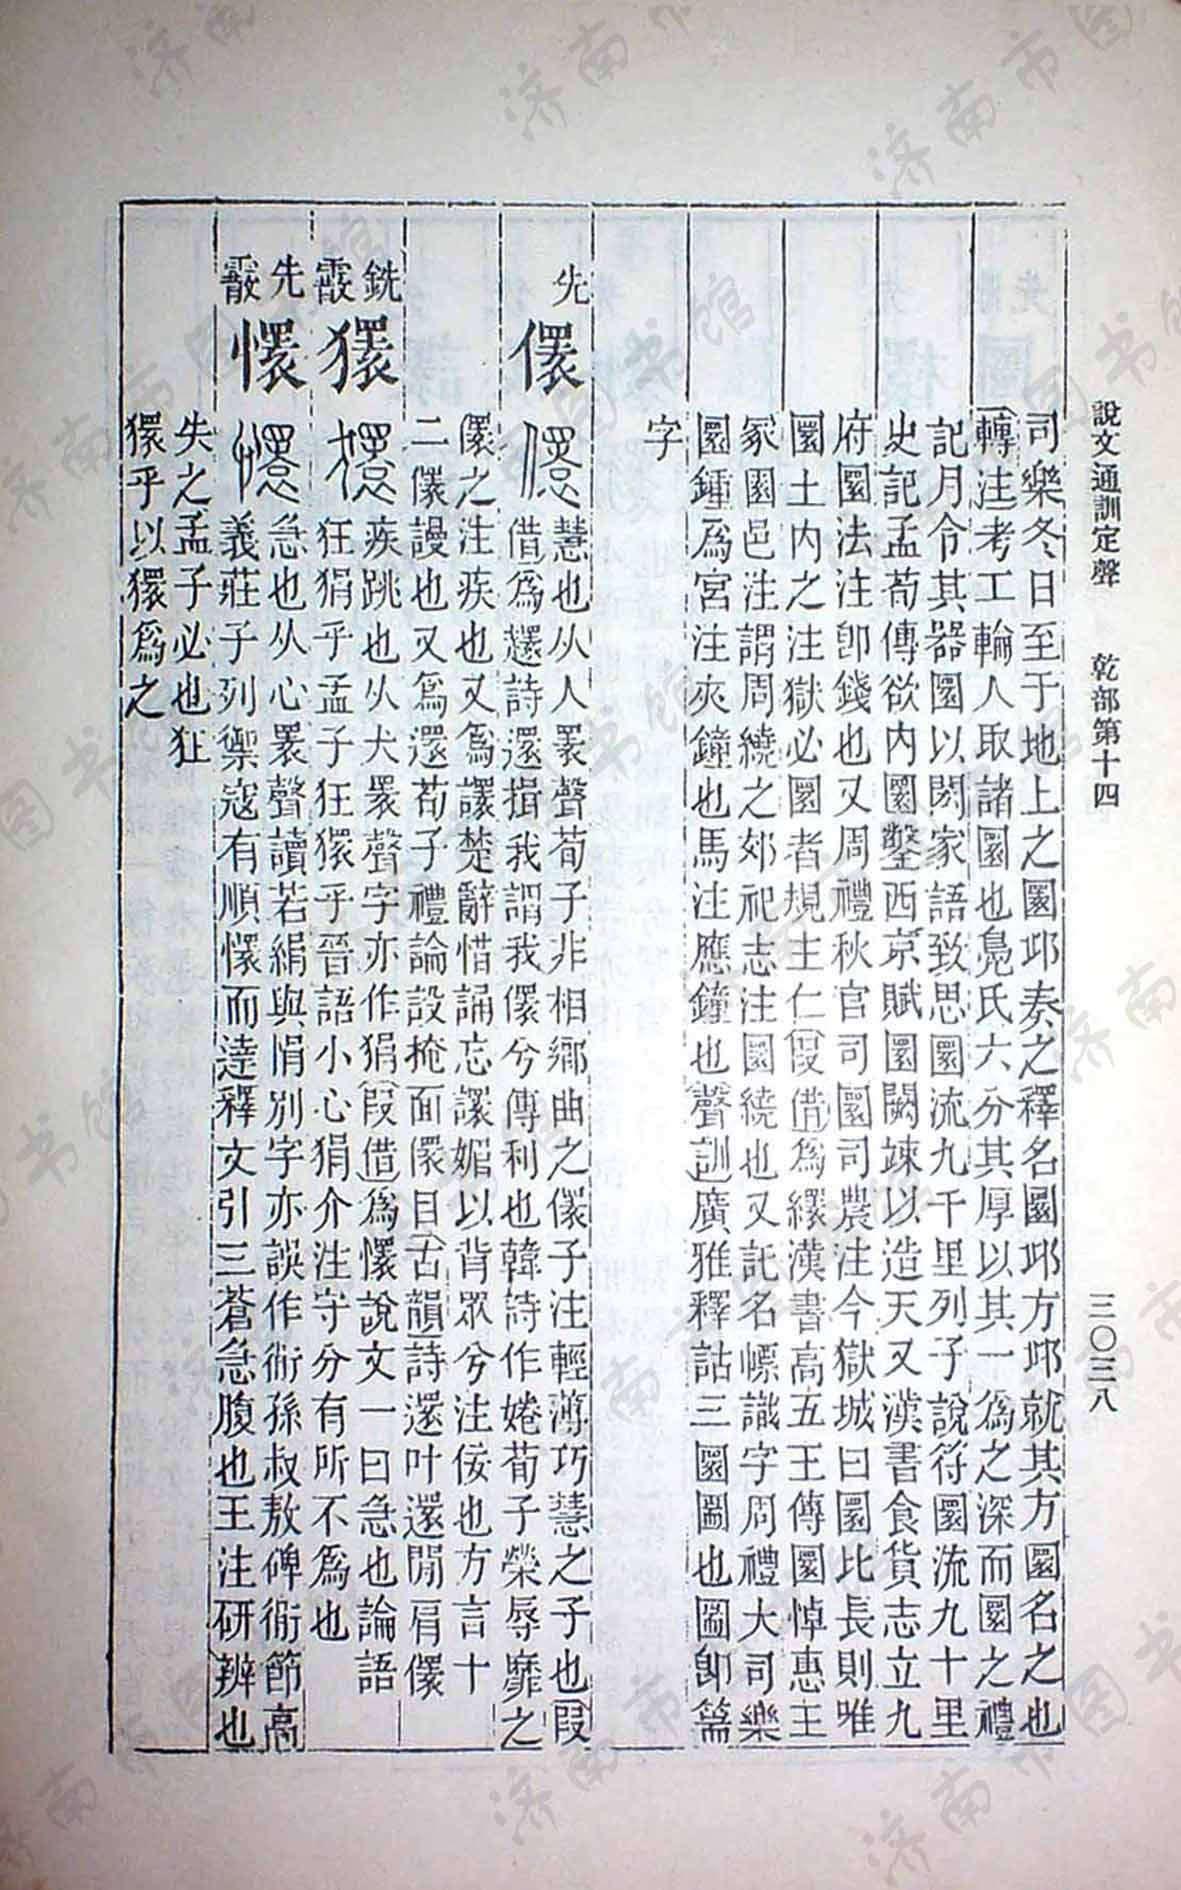 說文通訓定聲　乾部第十四　三〇三八
司樂冬日至于地上之圜邱奏之釋名圜邱方邱就其方圜名之也
轉注考工輪人取諸圜也鳧氏六分其厚以其一爲之深而圜之禮
記月令其器圜以閎家語致思圜流九千里列子說符圜流九十里
史記孟荀傳欲內圜鑿西京賦圜闕竦以造天又漢書食貨志立九
府圜法注卽錢也又周禮秋官司圜司農注今獄城曰圜比長則唯
圜土內之注獄必圜者規主仁叚借爲繯漢書高五王傳圜悼惠王
冢園邑注謂周繞之郊祀志注圜繞也又託名幖識字周禮大司樂
圜鍾爲宮注夾鐘也馬注應鐘也聲訓廣雅釋詁三圜圖也圖卽篅
字
先
儇　慧也从人瞏聲荀子非相鄉曲之儇子注輕薄巧慧之子也叚
借爲趯詩還揖我謂我儇兮傳利也韓詩作婘荀子榮辱靡之
儇之注疾也又爲譞楚辭惜誦忘譞媚以背眾兮注佞也方言十
二儇謾也又爲還荀子禮論設掩面儇目古韻詩還叶還閒肩儇
銑霰
獧　疾跳也从犬瞏聲字亦作狷叚借爲懁說文一曰急也論語
狂狷乎孟子狂獧乎晉語小心狷介注守分有所不爲也
先霰
懁　急也从心瞏聲讀若絹與悁別字亦誤作衘孫叔敖碑衘節高
義莊子列禦寇有順懁而達釋文引三蒼急腹也王注研辨也
失之孟子必也狂
獧乎以獧爲之